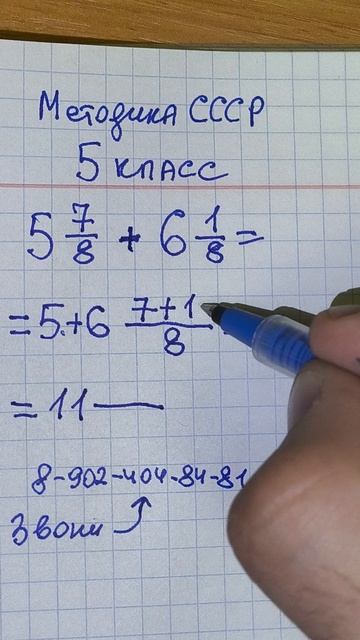 Методика СССР
5 класс
5 7/8 + 6 1/8 =
= 5 + 6 7+1/8
= 11
8-902-404-84-81
Звони